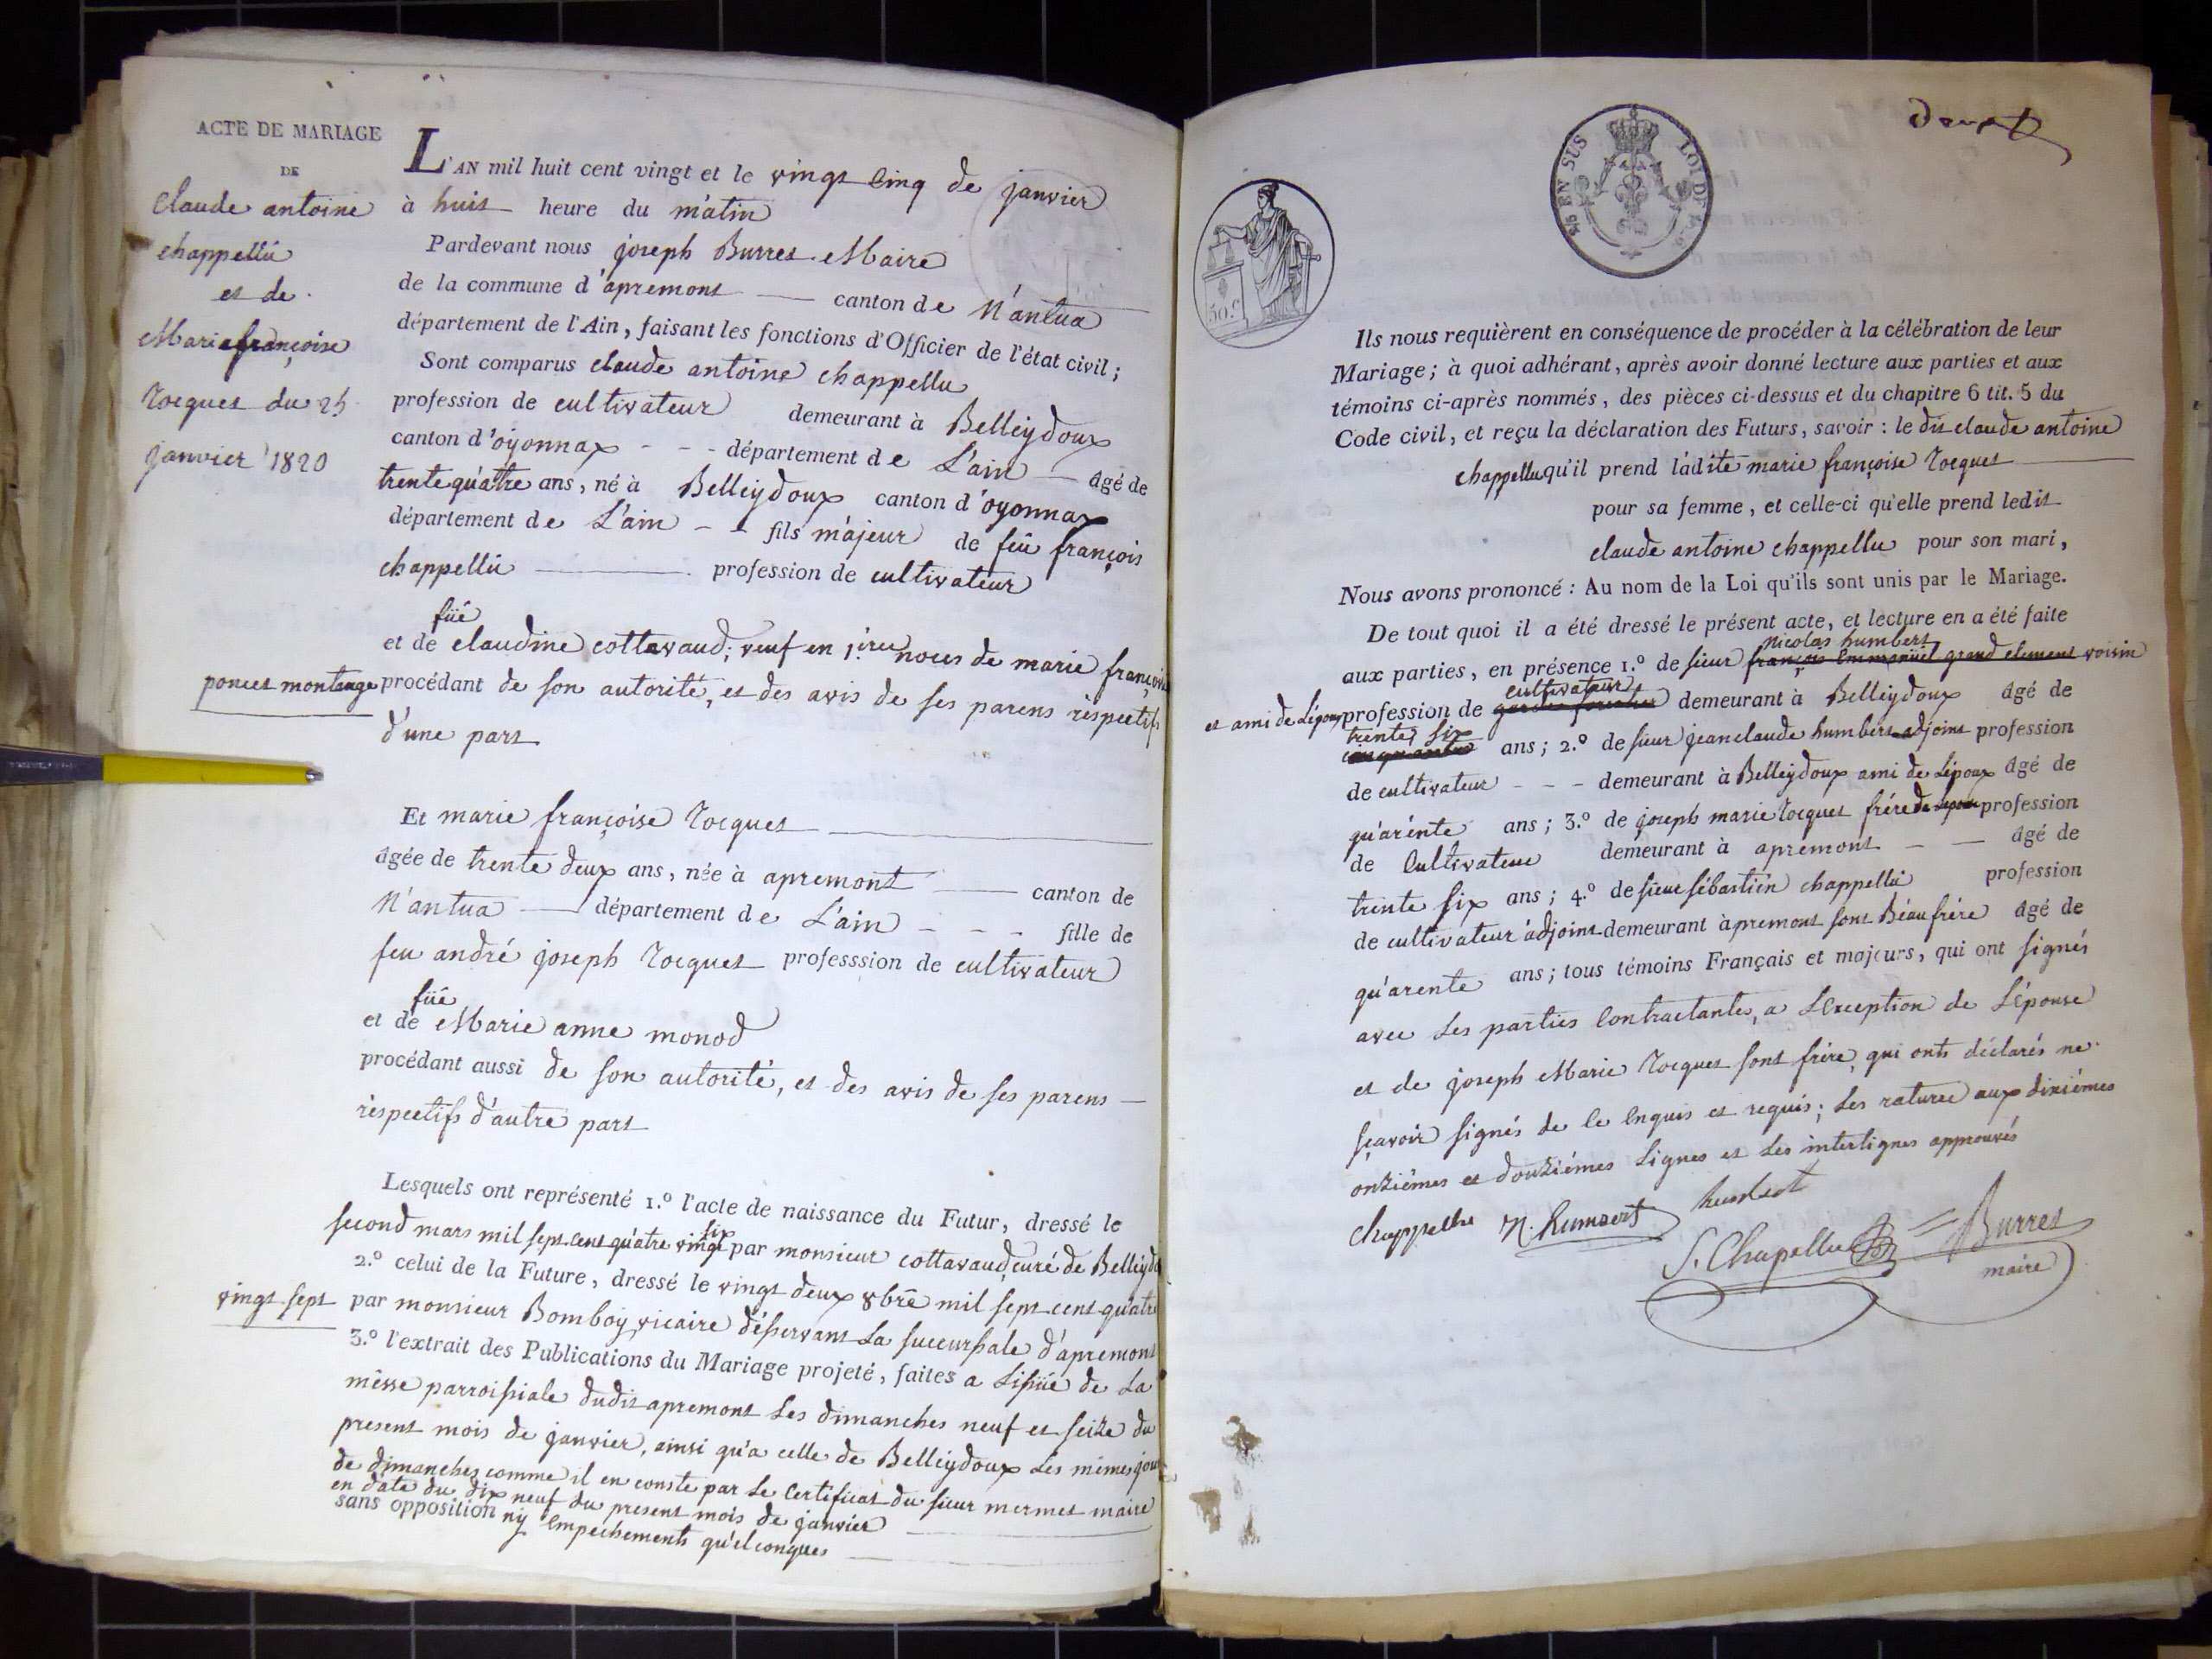 ACTE DE MARIAGE
DE
Claude antoine
chappellu
et de
Marie françoise
Rocquet du 25
janvier 1820
L'AN mil huit cent vingt et le vingt cinq de janvier
à huit heure du matin
Pardevant nous joseph Burret Maire
de la commune d'apremont canton de Nantua
département de l'Ain, faisant les fonctions d'Officier de l'état civil;
Sont comparus claude antoine chappellu
profession de cultivateur demeurant à Belleydoux
canton d'oyonnax - - département de L'ain âgé de
trente quatre ans, né à Belleydoux canton d'oyonnax
département de L'ain - - fils majeur de feû françois
chappellu profession de cultivateur
füe
et de claudine cottavaud; veuf en 1.ere noces de marie françoise
poncet montange procédant de son autorité, et des avis de ses parens respectifs
d'une part
Et marie françoise Rocquet
âgée de trente deux ans, née à apremont canton de
Nantua département de L'ain - - - fille de
feu andré joseph Rocquet professsion de cultivateur
füe
et de Marie anne monod
procédant aussi de son autorité, et des avis de ses parens
respectifs d'autre part
Lesquels ont représenté 1.º l'acte de naissance du Futur, dressé le
six
second mars mil sept cent quatre vingt par monsieur cottavaud curé de Belleydo
2.º celui de la Future, dressé le vingt deux 8bre mil sept cent quatre
vingt sept par monsieur Bomboy vicaire déservant La succursale d'apremont
3.º l'extrait des Publications du Mariage projeté, faites a Lissüe de La
messe parroissiale dudit apremont Les dimanches neuf et seize du
present mois de janvier, ainsi qu'a celle de Belleydoux Les mêmes jour
de dimanches comme il en conste par Le Certificat du sieur mermet maire
en date du dix neuf du present mois de janvier
sans opposition ny Empechements quelconques
5c EN SUS LOI DE
50.c
Ils nous requièrent en conséquence de procéder à la célébration de leur
Mariage; à quoi adhérant, après avoir donné lecture aux parties et aux
témoins ci-après nommés, des pièces ci-dessus et du chapitre 6 tit. 5 du
Code civil, et reçu la déclaration des Futurs, savoir: le dit claude antoine
chappellu qu'il prend ladite marie françoise Rocquet
pour sa femme, et celle-ci qu'elle prend ledit
claude antoine chappellu pour son mari,
Nous avons prononcé: Au nom de la Loi qu'ils sont unis par le Mariage.
De tout quoi il a été dressé le présent acte, et lecture en a été faite
Nicolas humbert
aux parties, en présence 1.º de sieur françois Emmanuel grand clement voisin
cultivateur
et ami de Lépoux profession de garde forestier demeurant à Belleydoux âgé de
trente six
cinquante ans; 2.º de sieur jean claude humbert adjoint profession
de cultivateur - - - demeurant à Belleydoux ami de Lépoux âgé de
quarente ans; 3.º de joseph marie Rocquet frére de Lepouse profession
de Cultivateur demeurant à apremont âgé de
trente six ans; 4.º de sieur sébastien chappellu profession
de cultivateur adjoint demeurant apremont sont Béau frére âgé de
quarente ans; tous témoins Français et majeurs, qui ont signés
avec Les parties Contractantes, a LException de Lépouse
et de joseph Marie Rocquet sont frére, qui onts déclarés ne
sçavoir signés de Ce Enquis et requis; Les raturee aux dixiémes
onziémes et douziémes Lignes et Les interlignes approuvés
Chappellu N. humbert humbert
S. Chapellu Burret
maire